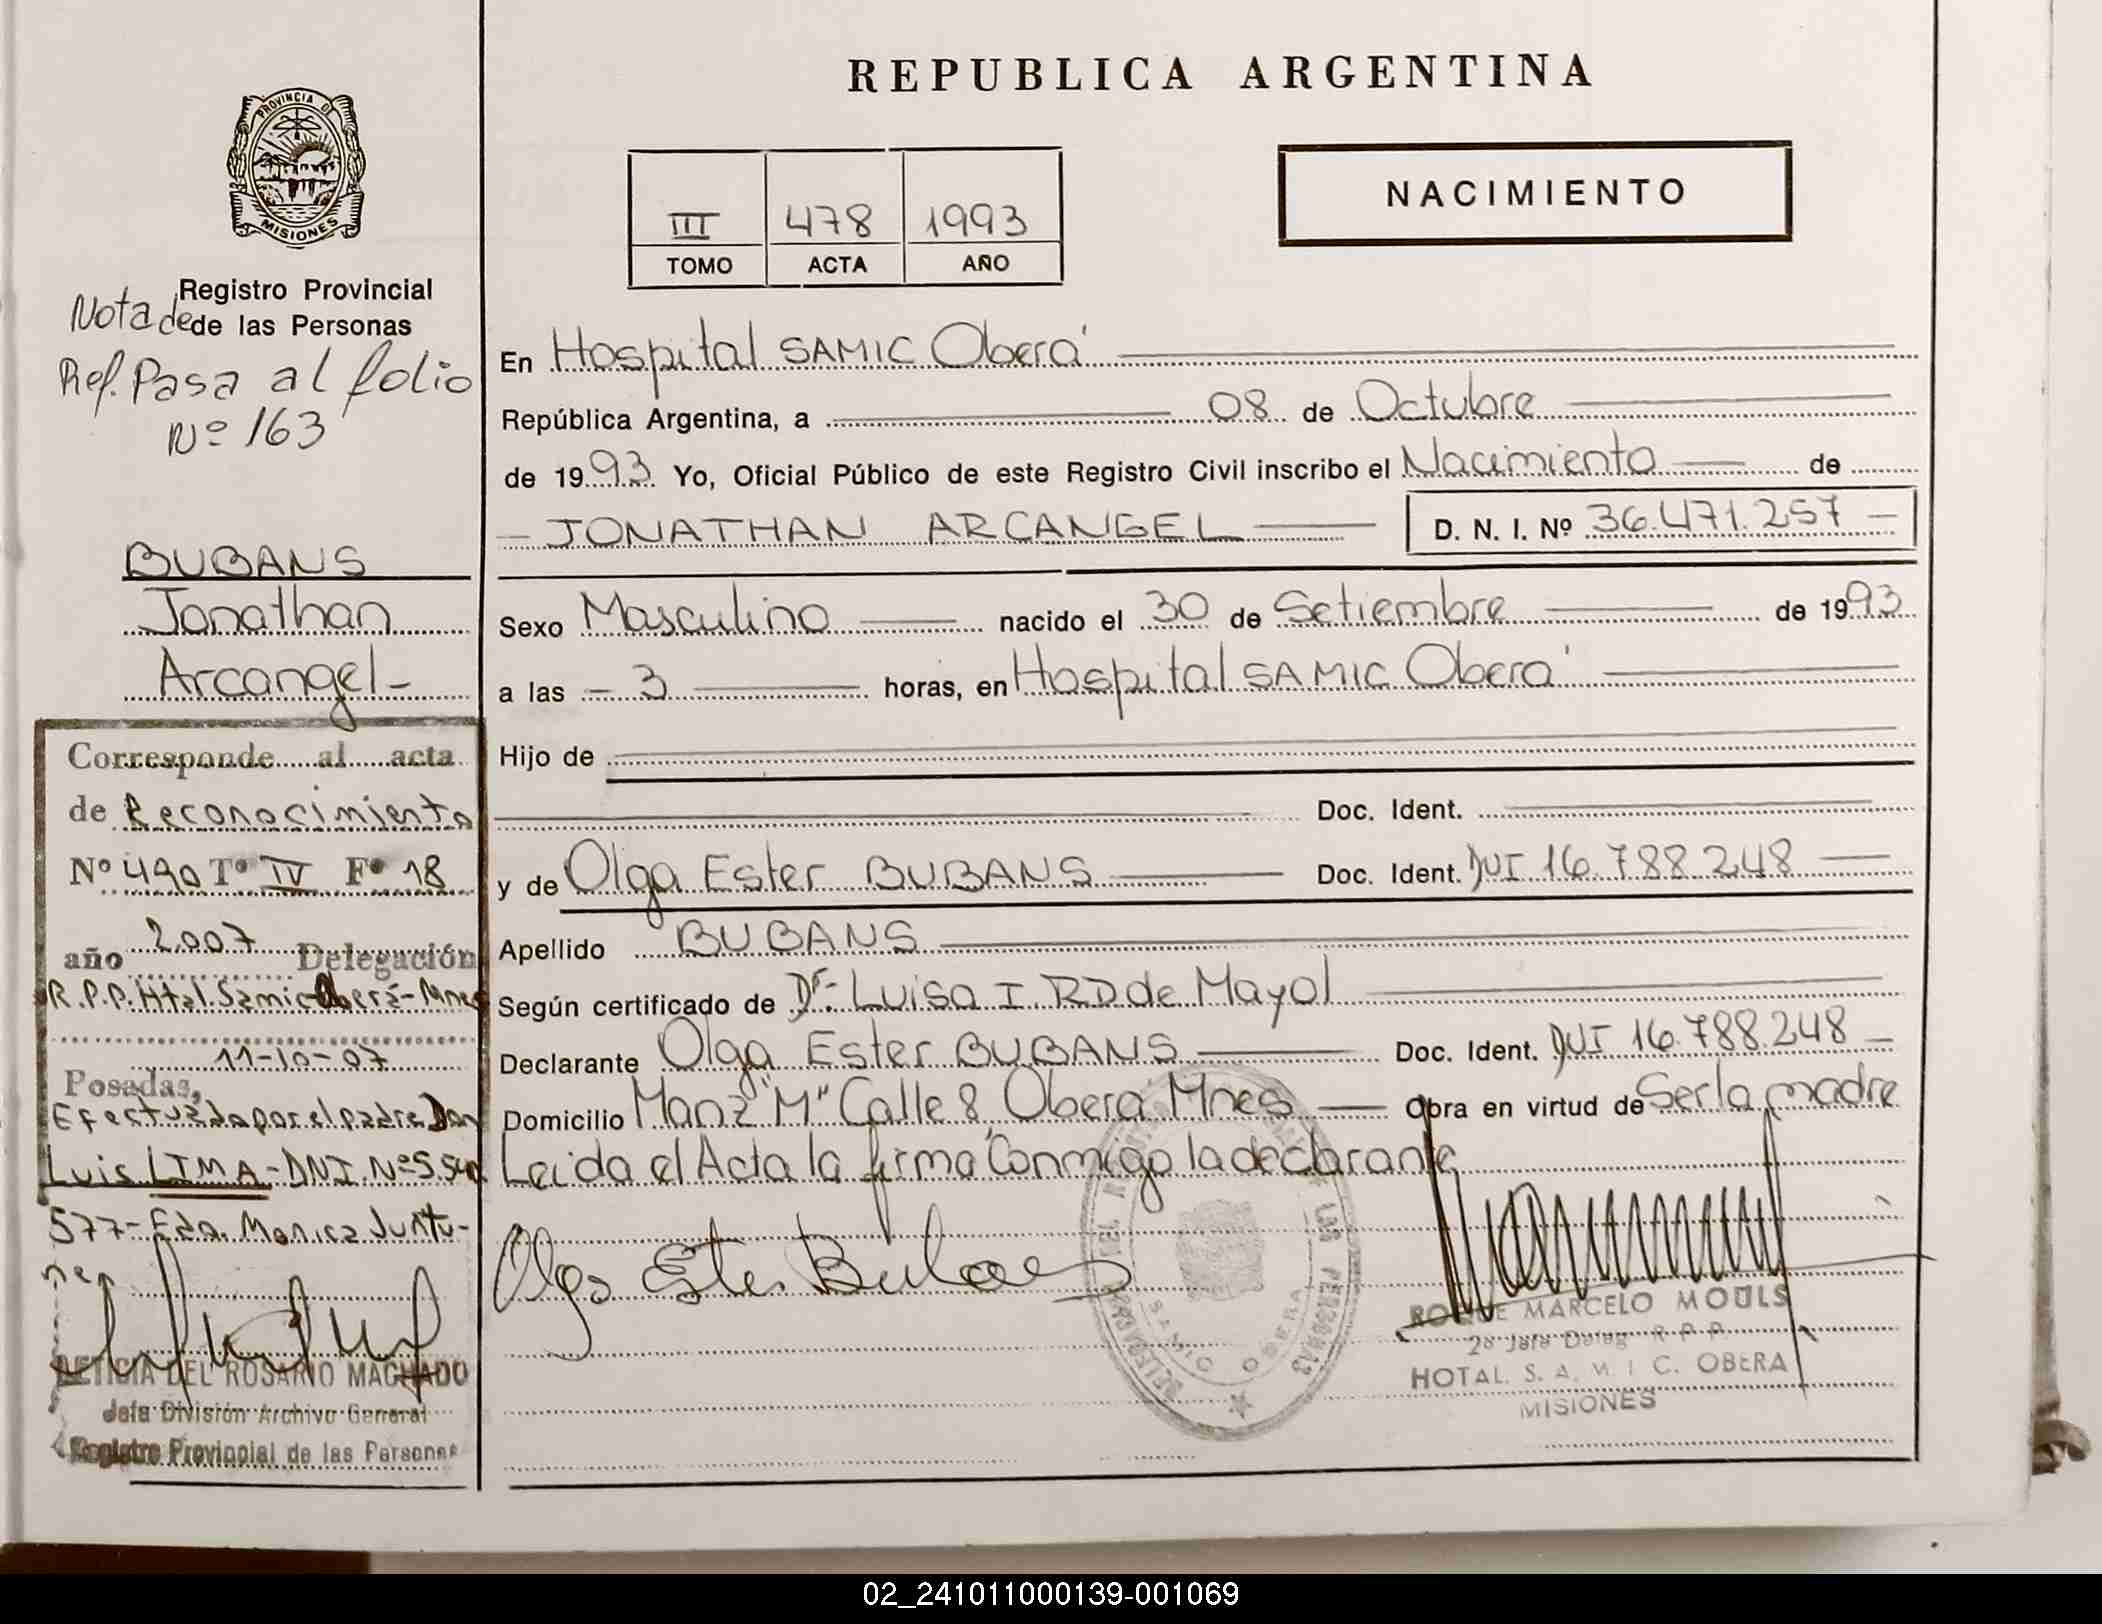 PROVINCIA DE
MISIONES
Registro Provincial
de las Personas
Nota de
Ref. Pasa al folio
Nº 163
BUBANS
Jonathan
Arcangel-
Corresponde al acta
de Reconocimiento
Nº 490 Tº IV Fº 18
año 2.007 Delegación
R.P.P. Htal. Samic Oberá-Mnes
11-10-07
Posadas,
Efectuada por el padre Don
Luis LIMA-DNI. Nº 5.540
577- Fdo. Monica Juntu-
LETICIA DEL ROSARIO MACHADO
Jefa División Archivo General
Registro Provincial de las Personas
REPUBLICA ARGENTINA
III 478 1993
TOMO ACTA AÑO
NACIMIENTO
En Hospital SAMIC Oberá
República Argentina, a 08 de Octubre
de 1993 Yo, Oficial Público de este Registro Civil inscribo el Nacimiento de
JONATHAN ARCANGEL D. N. I. Nº 36.471.257
Sexo Masculino nacido el 30 de Setiembre de 1993
a las 3 horas, en Hospital SAMIC Oberá
Hijo de
Doc. Ident.
y de Olga Ester BUBANS Doc. Ident. DUI 16.788.248
Apellido BUBANS
Según certificado de Dr. Luisa I. R.D de Mayol
Declarante Olga Ester BUBANS Doc. Ident. DUI 16.788.248
Domicilio Manz "M" Calle 8 Oberá Mnes Obra en virtud de Ser la madre
Leida el Acta la firma Conmigo la declarante
Olga Ester Bubans
SAMIC OBERA
ROQUE MARCELO MOULS
2º Jefe Deleg. R.P.P.
HOTAL. S. A. M. I C. OBERA
MISIONES
02_241011000139-001069